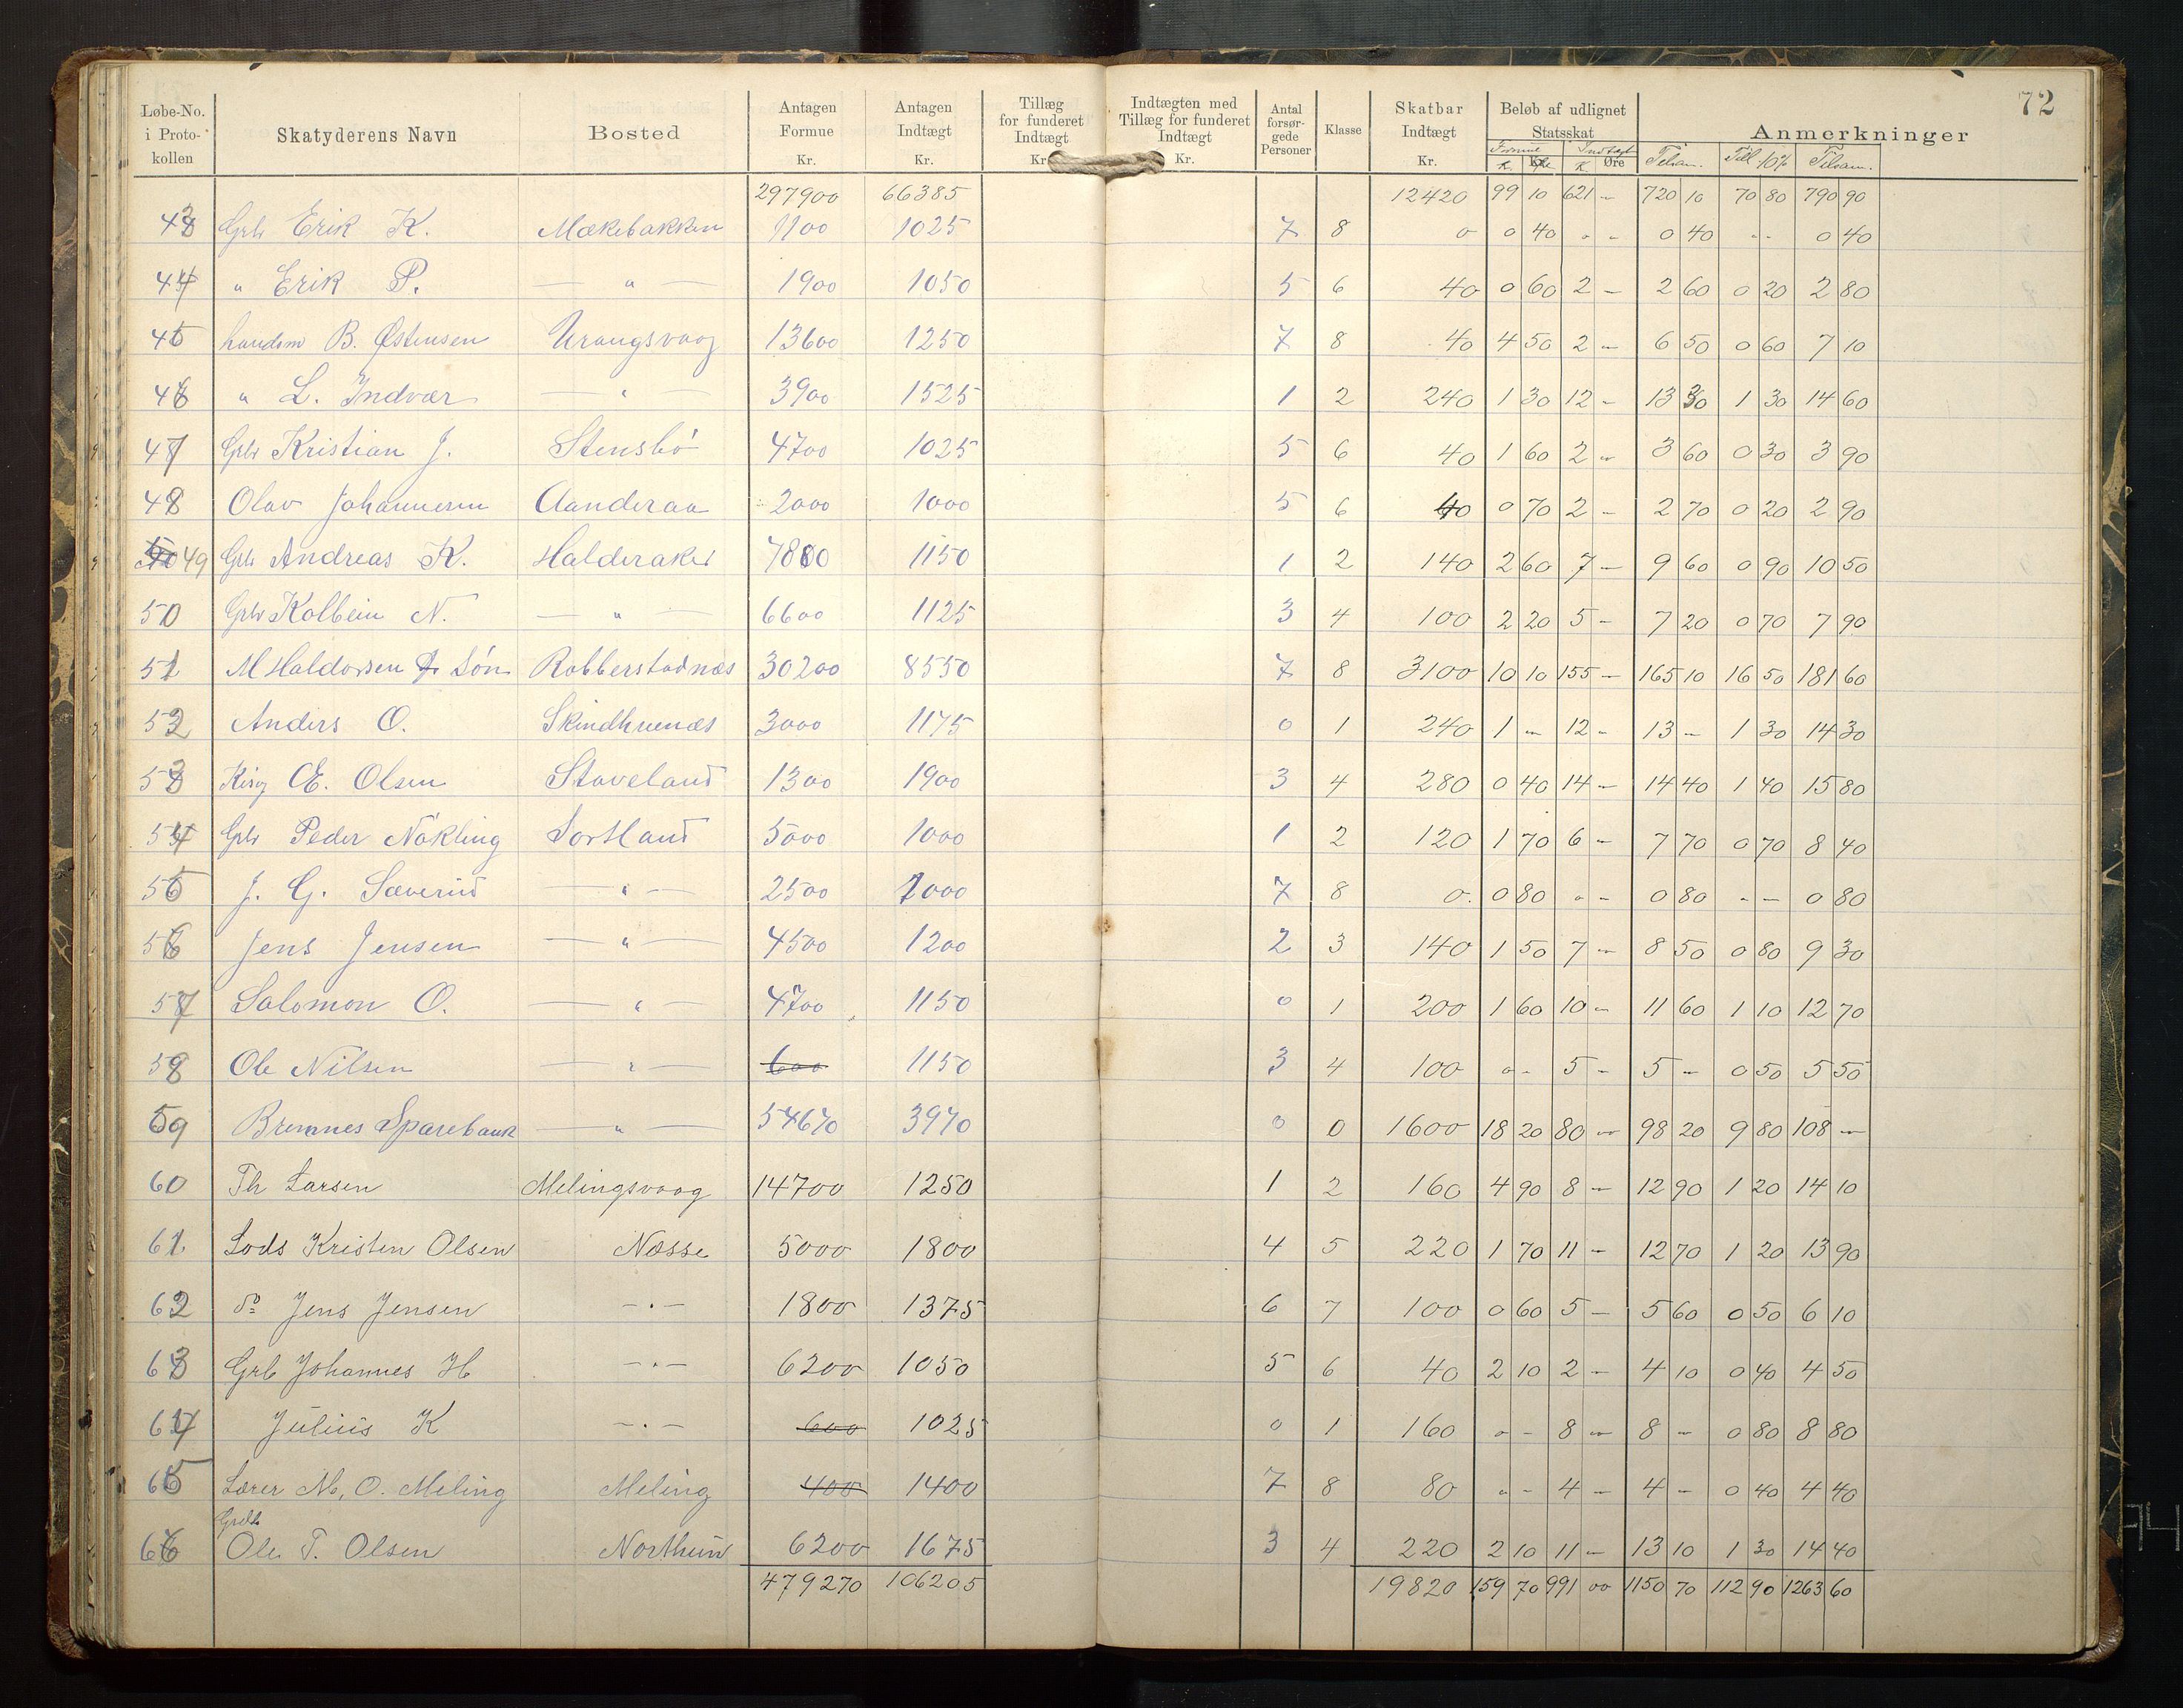 72
Løbe-No. i Protokollen | Skatyderens Navn | Bosted | Antagen Formue Kr. | Antagen Indtægt Kr. | Tillæg for funderet Indtægt Kr. | Indtægten med Tillæg for funderet Indtægt Kr. | Antal forsørgede Personer | Klasse | Skatbar Indtægt Kr. | Beløb af udlignet Statsskat Formue K. Øre Indtægt K. Øre | Anmerkninger Tilsam. Till. 10% Tilsam.
297900 66385 12420 99 10 621 - 720 10 70 80 790 90
43 Grb Erik K. Mækebakken 1100 1025 7 8 0 0 40 - - 0 40 - - 0 40
44 " Erik P. — " — 1900 1050 5 6 40 0 60 2 - 2 60 0 20 2 80
45 handsm B. Østensen Urangsvaag 13600 1250 7 8 40 4 50 2 - 6 50 0 60 7 10
46 " L. Indvær — " — 3900 1525 1 2 240 1 30 12 - 13 30 1 30 14 60
47 Grb Kristian J. Stensbø 4700 1025 5 6 40 1 60 2 - 3 60 0 30 3 90
48 Olav Johannesen Aanderaa 2000 1000 5 6 40 0 70 2 - 2 70 0 20 2 90
49 Grb Andreas K. Halderaker 7800 1150 1 2 140 2 60 7 - 9 60 0 90 10 50
50 Grb Kolbein N. — " — 6600 1125 3 4 100 2 20 5 - 7 20 0 70 7 90
51 M Haldorsen & Søn Rubberstadnæs 30200 8550 7 8 3100 10 10 155 - 165 10 16 50 181 60
52 Anders O. Skindhuenæs 3000 1175 0 1 240 1 - 12 - 13 - 1 30 14 30
53 E. Olsen Staveland 1300 1900 3 4 280 0 40 14 - 14 40 1 40 15 80
54 Grb Peder Nøkling Sortland 5000 1000 1 2 120 1 70 6 - 7 70 0 70 8 40
55 J. G. Sæverud — " — 2500 1000 7 8 0. 0 80 - - 0 80 - - 0 80
56 Jens Jensen — " — 4500 1200 2 3 140 1 50 7 - 8 50 0 80 9 30
57 Salomon O. — " — 4700 1150 0 1 200 1 60 10 - 11 60 1 10 12 70
58 Ole Nilsen — " — 600 1150 3 4 100 - - 5 - 5 - 0 50 5 50
59 Bremnes Sparebank — " — 54670 3970 0 0 1600 18 20 80 - 98 20 9 80 108 -
60 Th Larsen Melingsvaag 14700 1250 1 2 160 4 90 8 - 12 90 1 20 14 10
61 Lods Kristen Olsen Næsse 5000 1800 4 5 220 1 70 11 - 12 70 1 20 13 90
62 do Jens Jensen - " - 1800 1375 6 7 100 0 60 5 - 5 60 0 50 6 10
63 Grb Johannes H - " - 6200 1050 5 6 40 2 10 2 - 4 10 0 40 4 50
64 Julius K - " - 600 1025 0 1 160 - - 8 - 8 - 0 80 8 80
65 Lærer M. O. Meling Meling 400 1400 7 8 80 - - 4 - 4 - 0 40 4 40
66 Ole T. Olsen Northun 6200 1675 3 4 220 2 10 11 - 13 10 1 30 14 40
479270 106205 19820 159 70 991 00 1150 70 112 90 1263 60